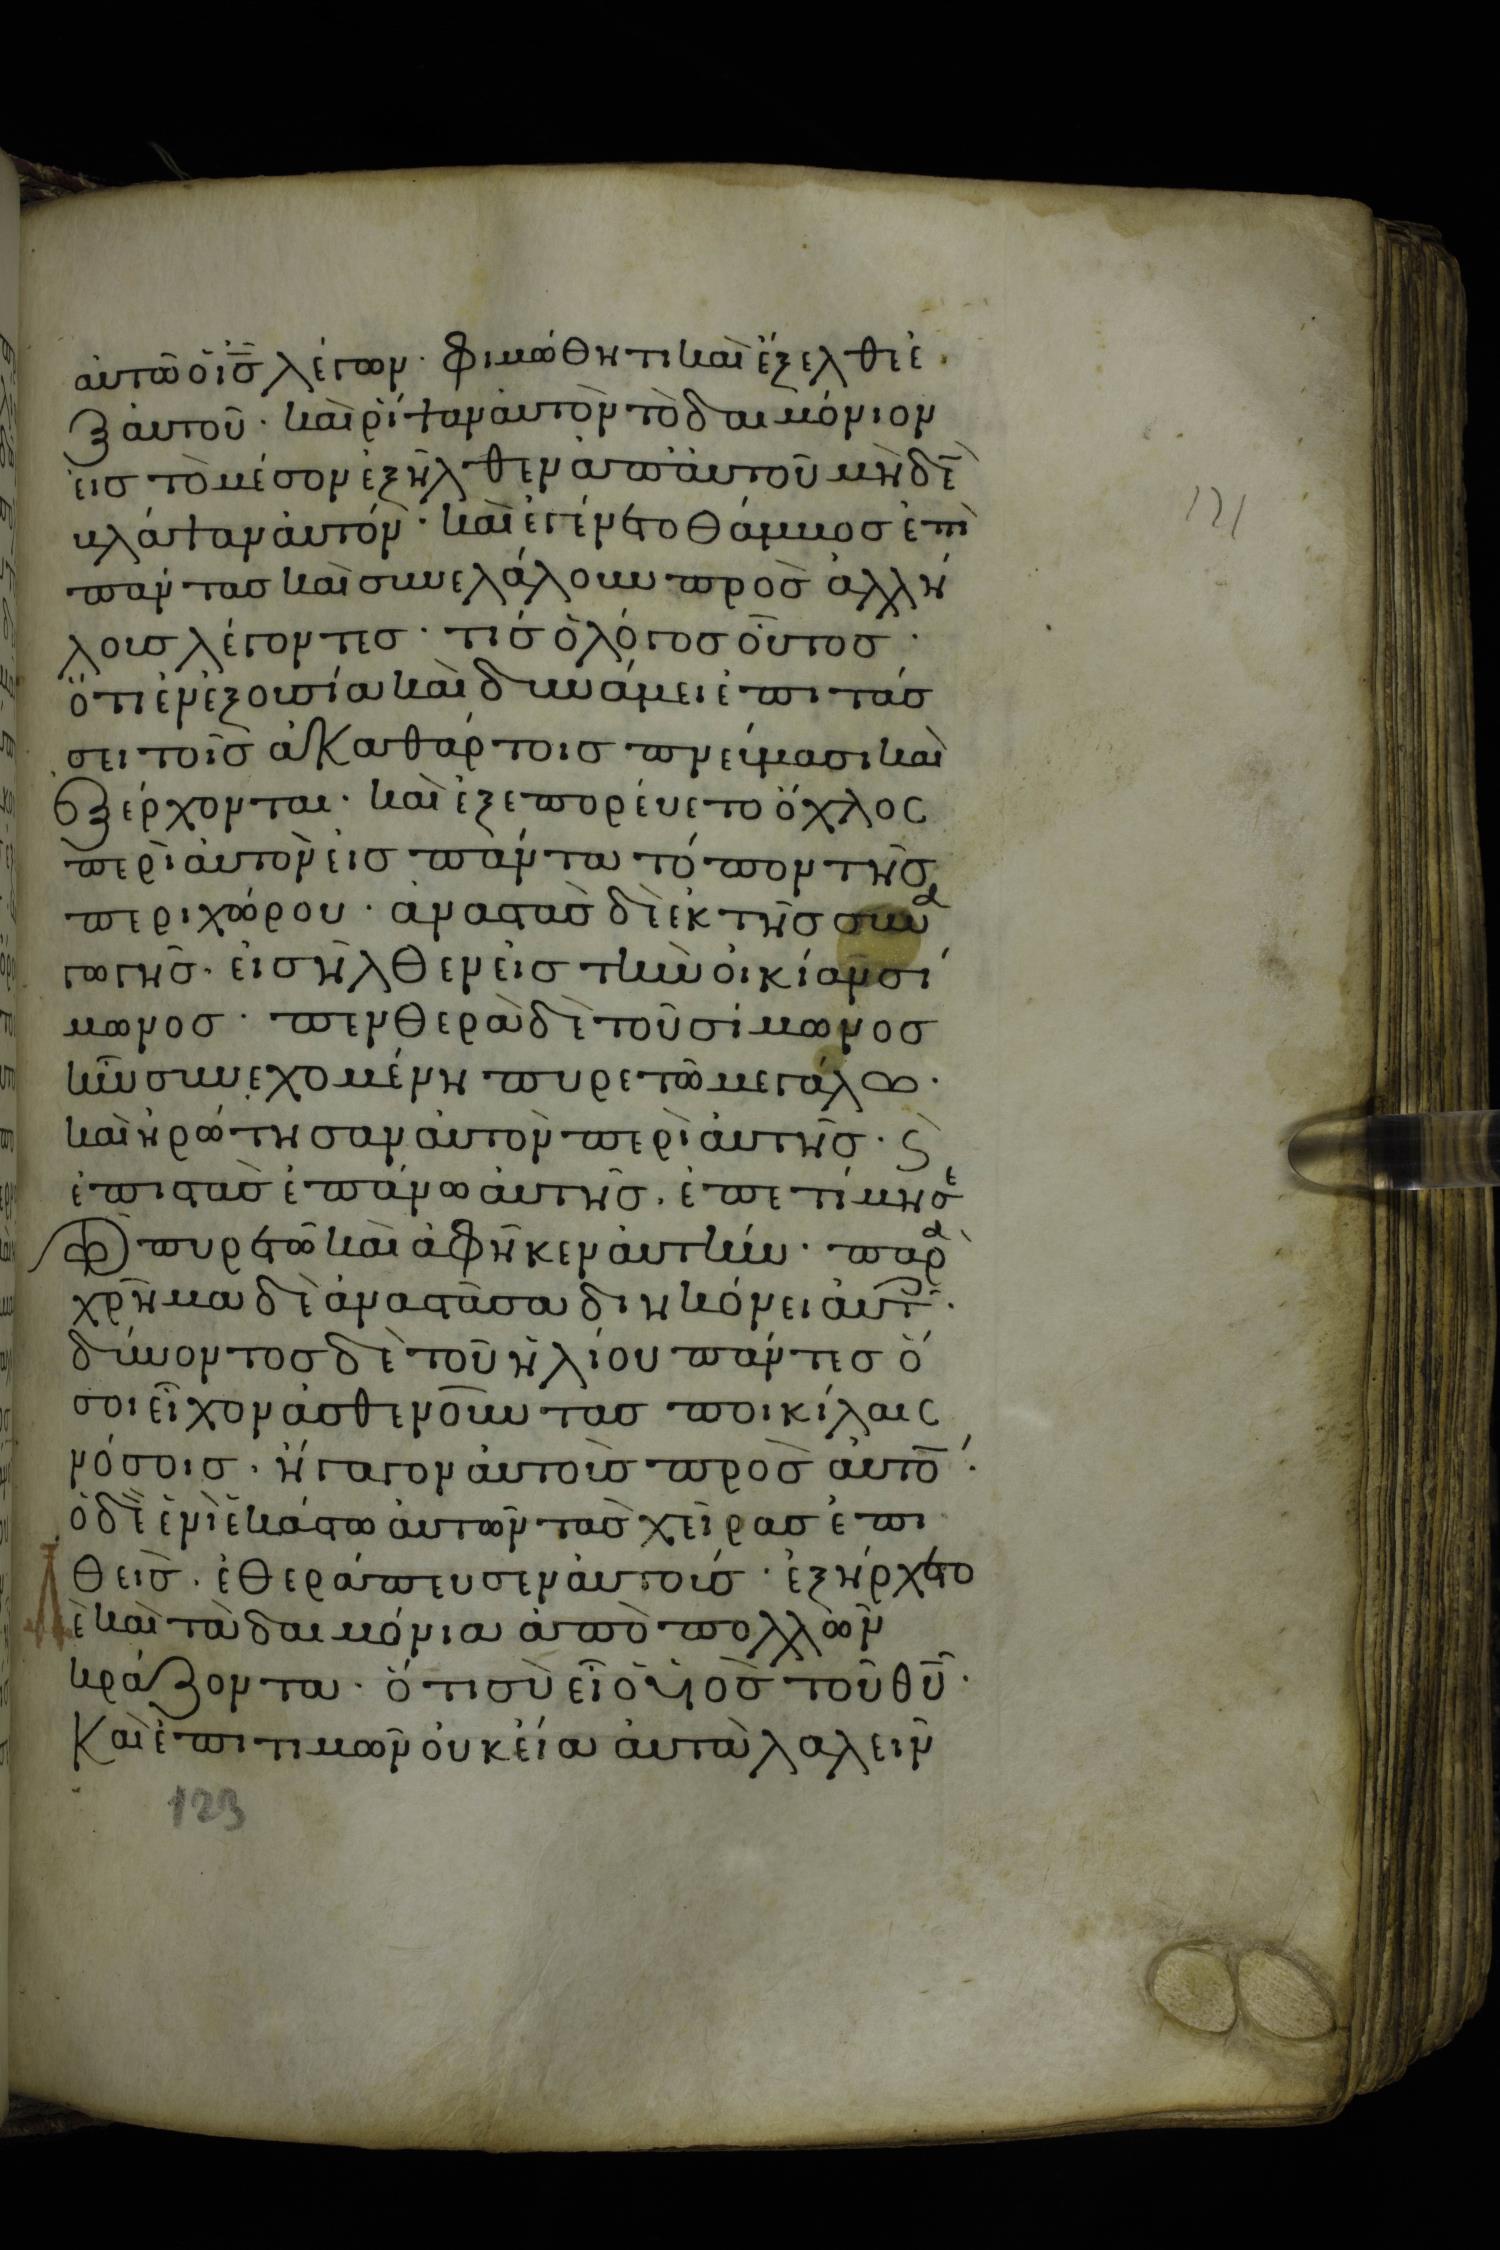 αὐτῶ ὁ ἰ̅ς̅ λέγων· φιμώθητι καὶ ἔξελθε ἐ
ξ αὐτοῦ· καὶ ῥίψαν αὐτὸν τὸ δαιμόνιον
εἰς τὸ μέσον ἐξῆλθεν ἀπ' αὐτοῦ μηδὲ̅
βλάψαν αὐτόν· καὶ ἐγένετο θάμβος ἐπὶ
πάντας καὶ συνελάλουν πρὸς ἀλλή
λους λέγοντες· τίς ὁ λόγος οὗτος·
ὅτι ἐν ἐξουσία καὶ δυνάμει ἐπιτάσ
σει τοῖς ἀκαθάρτοις πνεύμασι καὶ
ἐξέρχονται· καὶ ἐξεπορεύετο ὄχλος
περὶ αὐτὸν εἰς πάντα τόπον τῆς
περιχώρου· ἀναστὰς δὲ ἐκ τῆς συνα
γωγῆς· εἰσῆλθεν εἰς τὴν οἰκίαν σί
μωνος· πενθερὰ δὲ τοῦ σίμωνος
ἦν συνεχομένη πυρετῶ μεγάλω·
καὶ ἠρώτησαν αὐτὸν περὶ αὐτῆς· ϗ
ἐπιστὰς ἐπάνω αὐτῆς· ἐπετίμησε
τῶ πυρετῶ καὶ ἀφῆκεν αὐτήν· παρα
χρῆμα δὲ ἀναστᾶσα διηκόνει αὐτ·
δύνοντος δὲ τοῦ ἡλίου πάντες ὅ
σοι εἶχον ἀσθενοῦντας ποικίλαις
νόσοις· ἤγαγον αὐτοὺς πρὸς αὐτό̅·
ὁ δὲ ἑνὶ ἑκάστω αὐτῶν τὰς χεῖρας ἐπι
θεὶς· ἐθεράπευσεν αὐτούς· ἐξήρχετο
δὲ καὶ τὰ δαιμόνια ἀπὸ πολλῶν
κράζοντα· ὅτι σὺ εἶ ὁ υἱὸς τοῦ θ̅υ̅·
Καὶ ἐπιτιμῶν οὐκ εἴα αὐτὰ λαλεῖν
123
121